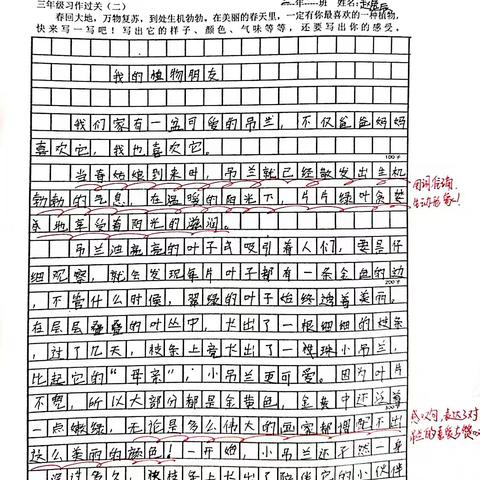 三年级习作过关（二）
年 班 姓名:
春回大地，万物复苏，到处生机勃勃。在美丽的春天里，一定有你最喜欢的一种植物，
快来写一写吧！写出它的样子、颜色、气味等等，还要写出你的感受。
我的植物朋友
我们家有一盆可爱的吊兰，不仅爸爸妈妈
喜欢它，我也喜欢它。
100字
当春姑娘到来时，吊兰就已经散发出生机
勃勃的气息，在温暖的阳光下，片片绿叶贪婪
用词准确
生动形象！
地享受着阳光的滋润。
吊兰油亮亮的叶子或吸引着人们，要是仔
细观察，就会发现每片叶子都有一条金色的边
200字
，不管什么时候，翠绿的叶子始终披着美丽。
在层层叠叠的叶丛中，长出了一根细细的枝条
，过了几天，枝条上竟长出了一棵小吊兰，
比起它的“母亲”，小吊兰更可爱。因为叶片
不宽，所以大部分都是金黄色，金黄中还泛着
300字
一点嫩绿，无论是多么伟大的画家都调配不出
感叹句，表达了对
吊兰的喜爱与赞
这么美丽的颜色！一开始，小吊兰还孑然一身
没过多久，枝条上长出了陪伴它的小伙伴